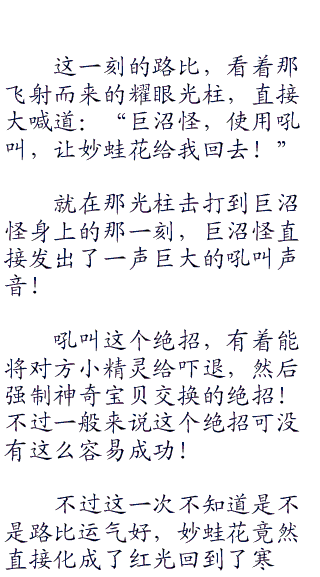 这一刻的路比，看着那
飞射而来的耀眼光柱，直接
大喊道：“巨沼怪，使用吼
叫，让妙蛙花给我回去！”
就在那光柱击打到巨沼
怪身上的那一刻，巨沼怪直
接发出了一声巨大的吼叫声
音！
吼叫这个绝招，有着能
将对方小精灵给吓退，然后
强制神奇宝贝交换的绝招！
不过一般来说这个绝招可没
有这么容易成功！
不过这一次不知道是不
是路比运气好，妙蛙花竟然
直接化成了红光回到了寒